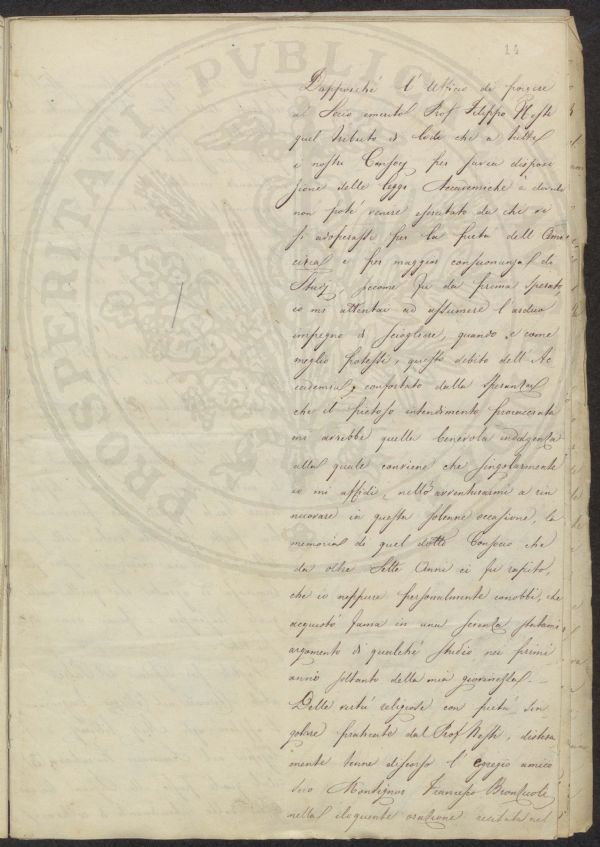 14
PROSPERITATI PVBLIC
Dapposchè l'Ufficio di porgere
al Socio emerito Prof Filippo
quel tributo di lode che a tutti
i nostri Consocj per savia disposi
zione delle leggi Accademiche è dovuto
non potè venire esercitato da chi vi
si adoperasse per la pietà dell' Ami
cizia e per maggior consonanza di
Studj, siccome fu da prima sperato,
io mi attentai ad assumere l'arduo
impegno di sciogliere, quando e come
meglio potessi, questo debito dell' Ac
cademia, confortato dalla speranza
che il pietoso intendimento procacciata
mi avrebbe quella benevola indulgenza
alla quale conviene che singolarmente
io mi affidi, nell' avventurarmi a rin
nuovare in questa solenne occasione, la
memoria di quel dotto Consocio che
da oltre Sette Anni ci fu rapito,
che io neppure personalmente conobbi, che
acquistò fama in una scienza statami
argomento di qualche studio nei primi
anni soltanto della mia giovinezza. —
Delle virtù religiose con pietà sin
golare praticate dal Prof distesa
mente tenne discorso l' Egregio amico
suo Monsignor Francesco
nella eloquente orazione recitata nel